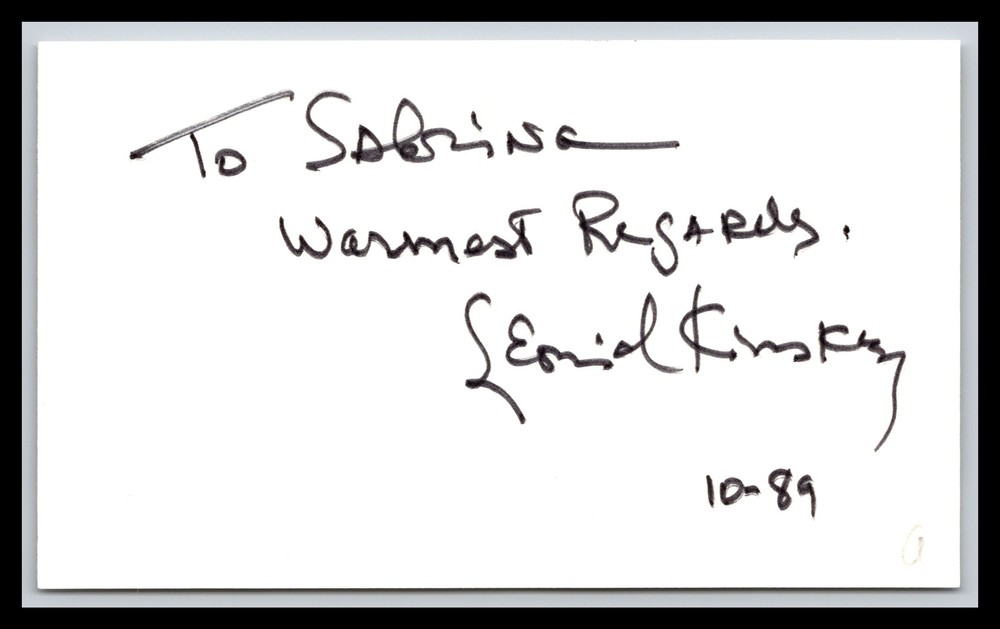 To Sabrina
Warmest Regards.
Leonid Kinskey
10-89